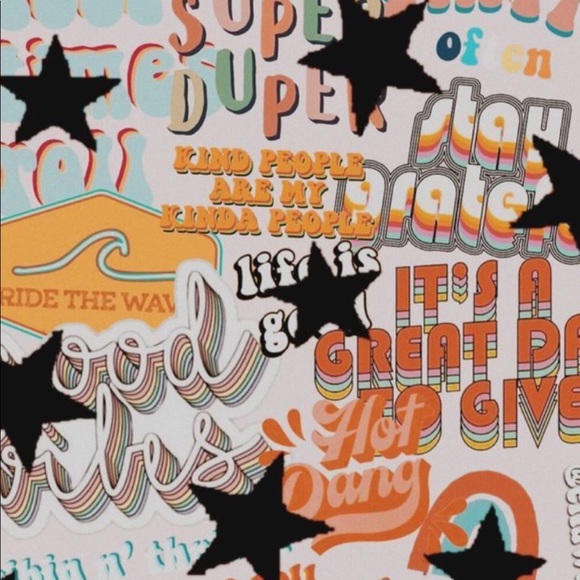 SUPER
DUPER
often
times
roll
KIND PEOPLE
ARE MY
KINDA PEOPLE
stay
grateful
RIDE THE WAV
life is
good
IT'S A
GREAT DA
TO GIVE
good
vibes
Hot
Dang